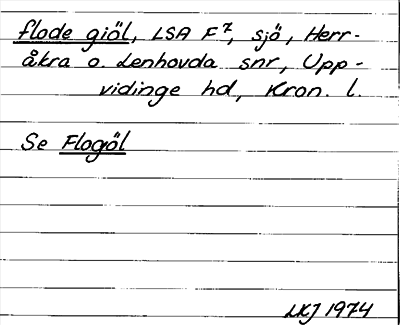 flode giöl, LSA F7, sjö, Herr-
åkra o. Lenhovda snr, Upp-
vidinge hd, Kron. l.
Se Flogöl
LKJ 1974